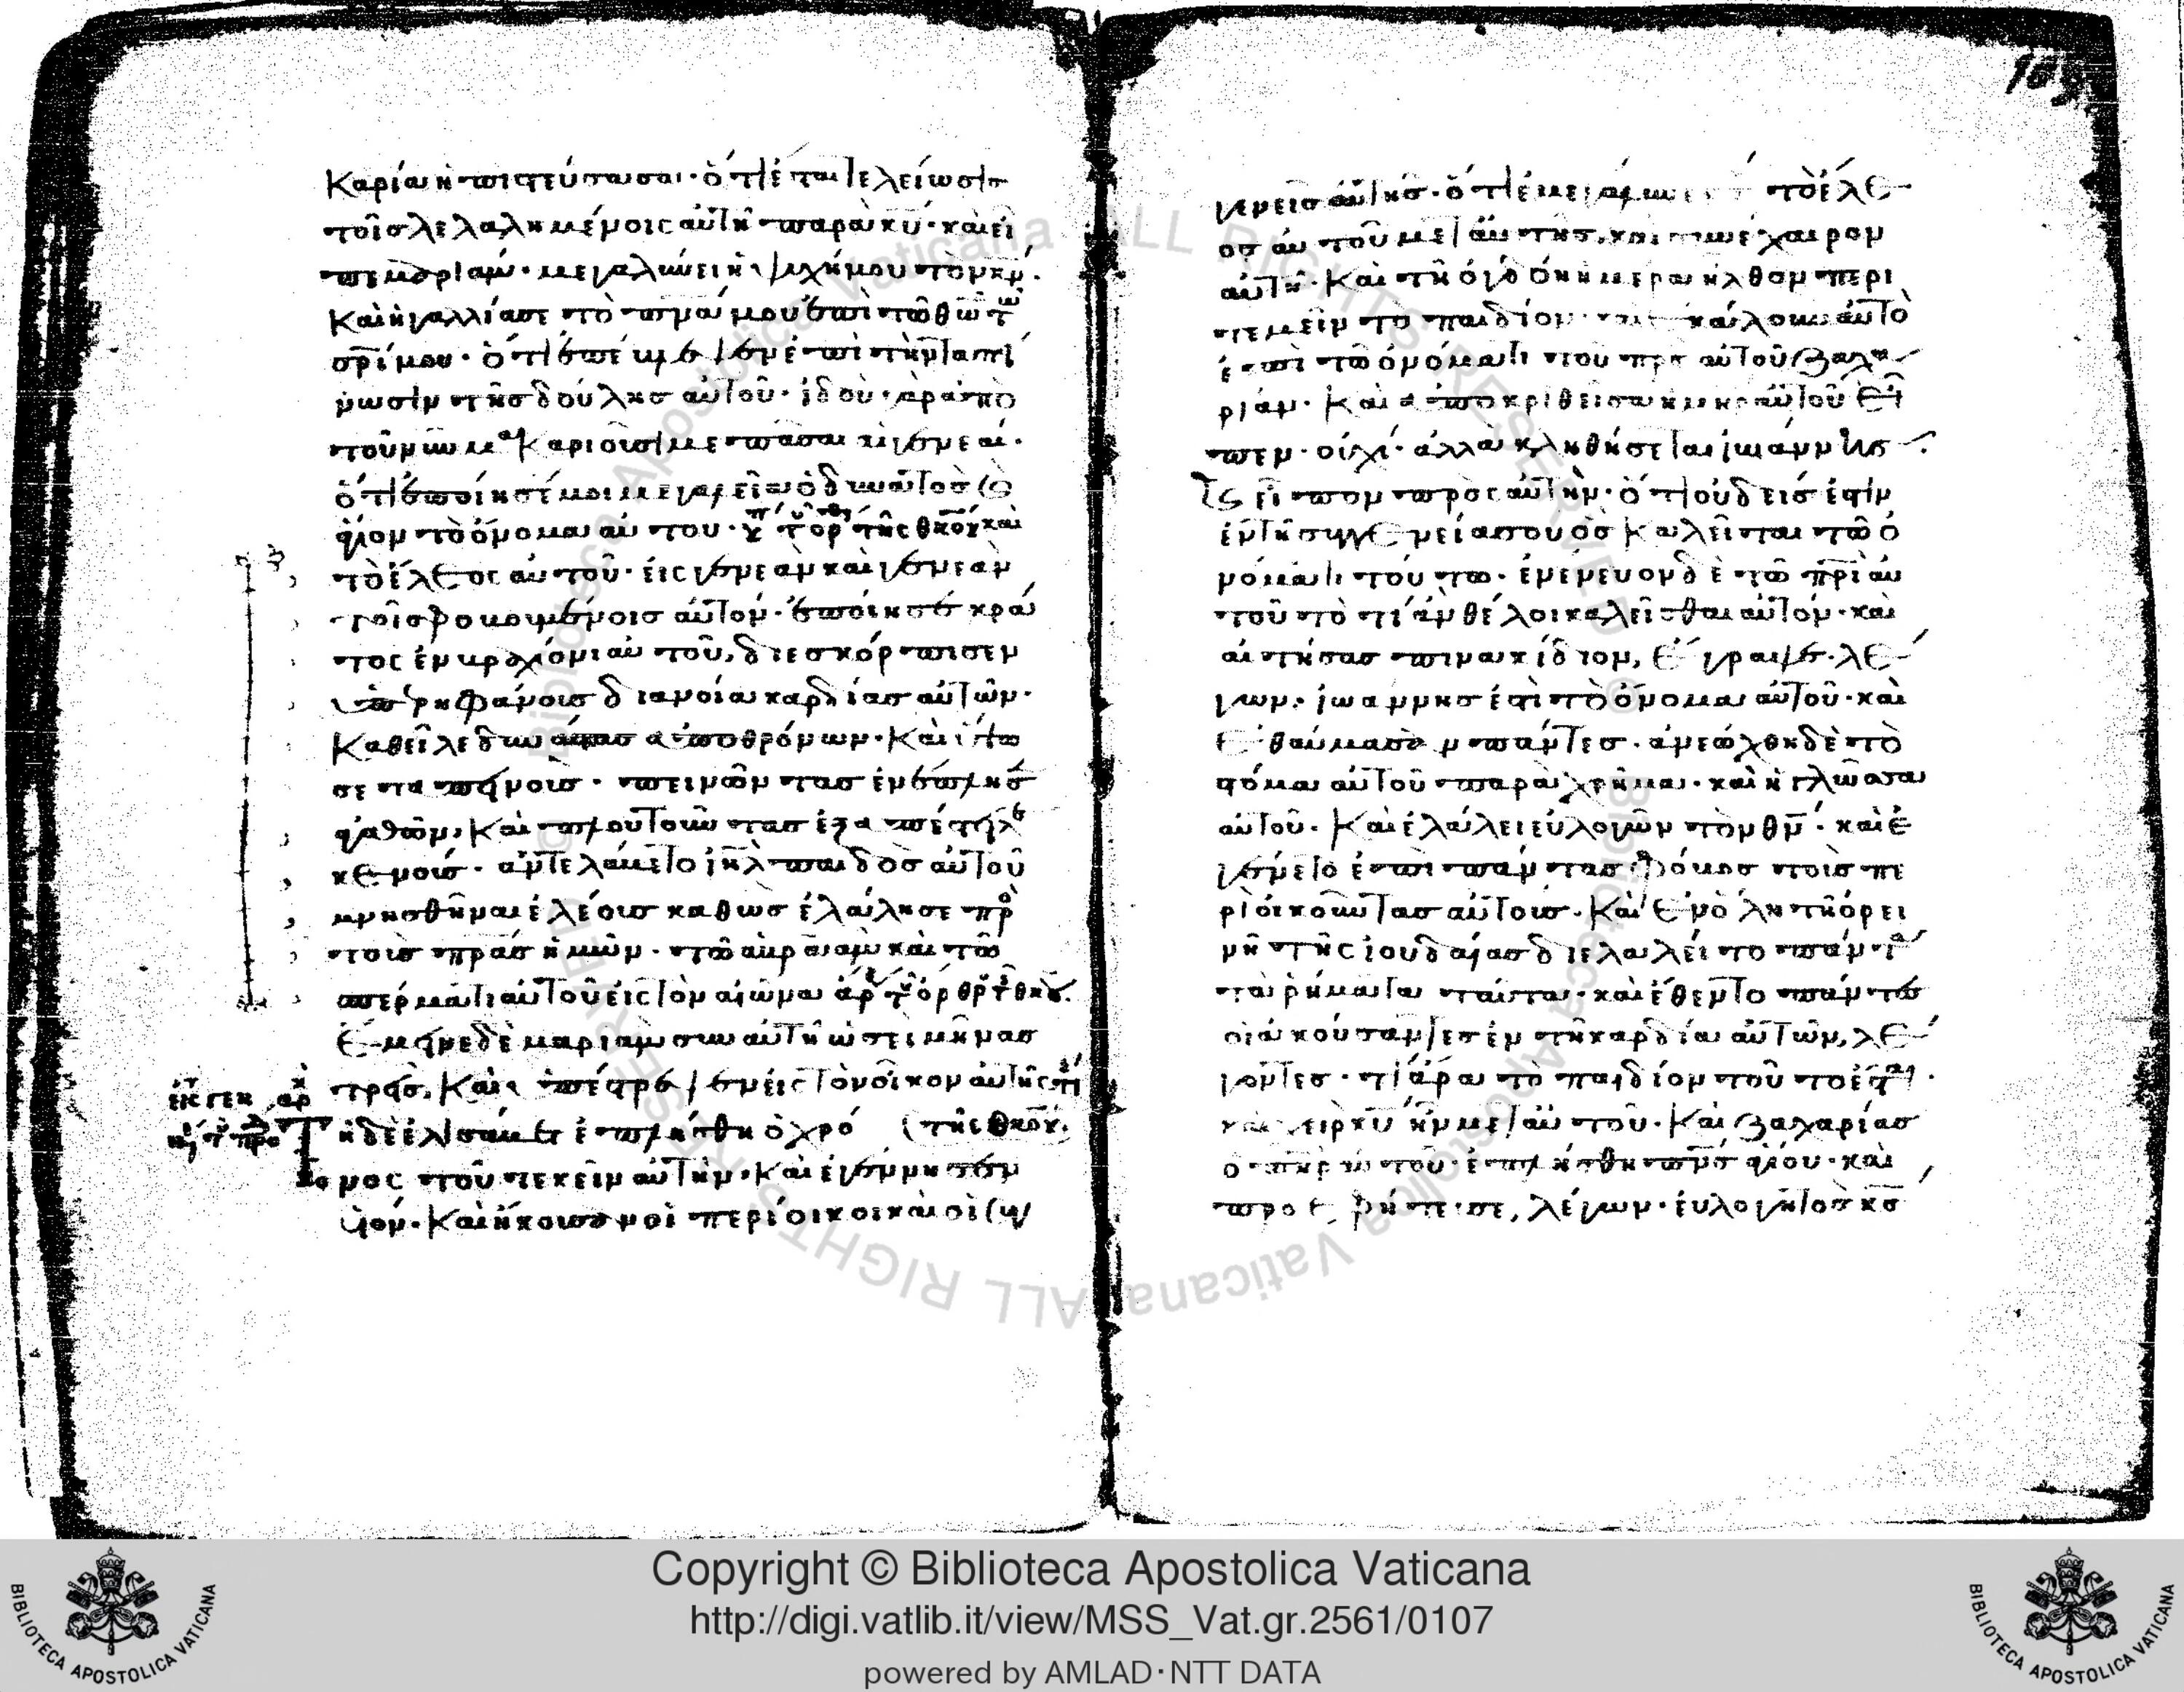 καρία ἡ πιστεύσασα· ὅτι ἔσται τελείωσις
τοῖς λελαλημένοις αὐτῇ παρὰ κυ· καὶ εἶ
πε μαριάμ· μεγαλύνει ἡ ψυχή μου τὸν κν·
Καὶ ἠγαλλίασε τὸ πνα μου ἐπὶ τῶ θω τω
σρι μου· ὅτι ἐπέβλεψεν ἐπὶ τὴν ταπεί
νωσιν τῆς δούλης αὐτοῦ· ἰδοὺ γὰρ ἀπὸ
τοῦ νῦν μακαριοῦσί με πᾶσαι αἱ γενεαί·
ὅτι ἐποίησέ μοι μεγαλεῖα ὁ δυνατὸς καὶ
ἅγιον τὸ ὄνομα αὐτοῦ· καὶ
τὸ ἔλεος αὐτοῦ· εἰς γενεὰν καὶ γενεὰν
τοῖς φοβουμένοις αὐτόν· ἐποίησε κρά
τος ἐν βραχίονι αὐτοῦ, διεσκόρπισεν
ὑπερηφάνους διανοία καρδίας αὐτῶν·
Καθεῖλε δυνάστας ἀπὸ θρόνων· Καὶ ὕψω
σε ταπεινούς· πεινῶντας ἐνέπλησεν
ἀγαθῶν, Καὶ πλουτοῦντας ἐξαπέστειλε
κενούς· ἀντελάβετο ιηλ παιδὸς αὐτοῦ
μνησθῆναι ἐλέους καθὼς ἐλάλησε πρὸς
τοὺς πρας ἡμῶν· τῶ ἀβραὰμ καὶ τῶ
σπέρματι αὐτοῦ εἰς τὸν αἰῶνα
Ἔμεινε δὲ μαριὰμ σὺν αὐτῇ ὡσεὶ μῆνας
τρεῖς, Καὶ ὑπέστρεψεν εἰς τὸν οἶκον αὐτῆς
Τῇ δὲ ἐλισάβετ ἐπλήσθη ὁ χρό
νος τοῦ τεκεῖν αὐτήν· Καὶ ἐγέννησεν
υἱόν· Καὶ ἤκουσαν οἱ περίοικοι καὶ οἱ συγ
γενεῖς αὐτῆς· ὅτι ἐμεγάλυνε τὸ ἔλε
ος αὐτοῦ μετ' αὐτῆς, καὶ συνέχαιρον
αὐτῇ· Καὶ τῇ ὀγδόη ἡμέρα ἦλθον περι
τεμεῖν τὸ παιδίον· καὶ ἐκάλουν αὐτὸ
ἐπὶ τῶ ὀνόματι τοῦ πρς αὐτοῦ ζαχα
ρίαν· Καὶ ἀποκριθεῖσα ἡ μηρ αὐτοῦ εἶ
πεν· οὐχί· ἀλλὰ κληθήσεται ἰωάννης·
Καὶ εἶπον πρὸς αὐτήν· ὅτι οὐδείς ἐστιν
ἐν τῇ συγγενεία σου ὃς καλεῖται τῶ ὀ
νόματι τούτω· ἐνένευον δὲ τῶ πρι αὐ
τοῦ τὸ τί ἂν θέλοι καλεῖσθαι αὐτόν· καὶ
αἰτήσας πινακίδιον, ἔγραψε λέ
γων· ἰωάννης ἐστὶ τὸ ὄνομα αὐτοῦ· καὶ
ἐθαύμασαν πάντες· ἀνεώχθη δὲ τὸ
στόμα αὐτοῦ παραχρῆμα· καὶ ἡ γλῶσσα
αὐτοῦ· Καὶ ἐλάλει εὐλογῶν τὸν θν· καὶ ἐ
γένετο ἐπὶ πάντας φόβος τοὺς πε
ριοικοῦντας αὐτούς· Καὶ ἐν ὅλη τῇ ὀρει
νῇ τῆς ἰουδαίας διελαλεῖτο πάντα
τὰ ῥήματα ταῦτα· καὶ ἔθεντο πάντες
οἱ ἀκούσαντες ἐν τῇ καρδία αὐτῶν, λέ
γοντες· τί ἄρα τὸ παιδίον τοῦτο ἔσται·
καὶ χεὶρ κυ ἦν μετ' αὐτοῦ· Καὶ ζαχαρίας
ὁ πηρ αὐτοῦ· ἐπλήσθη πνς ἁγίου· καὶ
προεφήτευσε, λέγων· εὐλογητὸς κς
Copyright © Biblioteca Apostolica Vaticana
http://digi.vatlib.it/view/MSS_Vat.gr.2561/0107
powered by AMLAD·NTT DATA
BIBLIOTECA APOSTOLICA VATICANA
BIBLIOTECA APOSTOLICA VATICANA